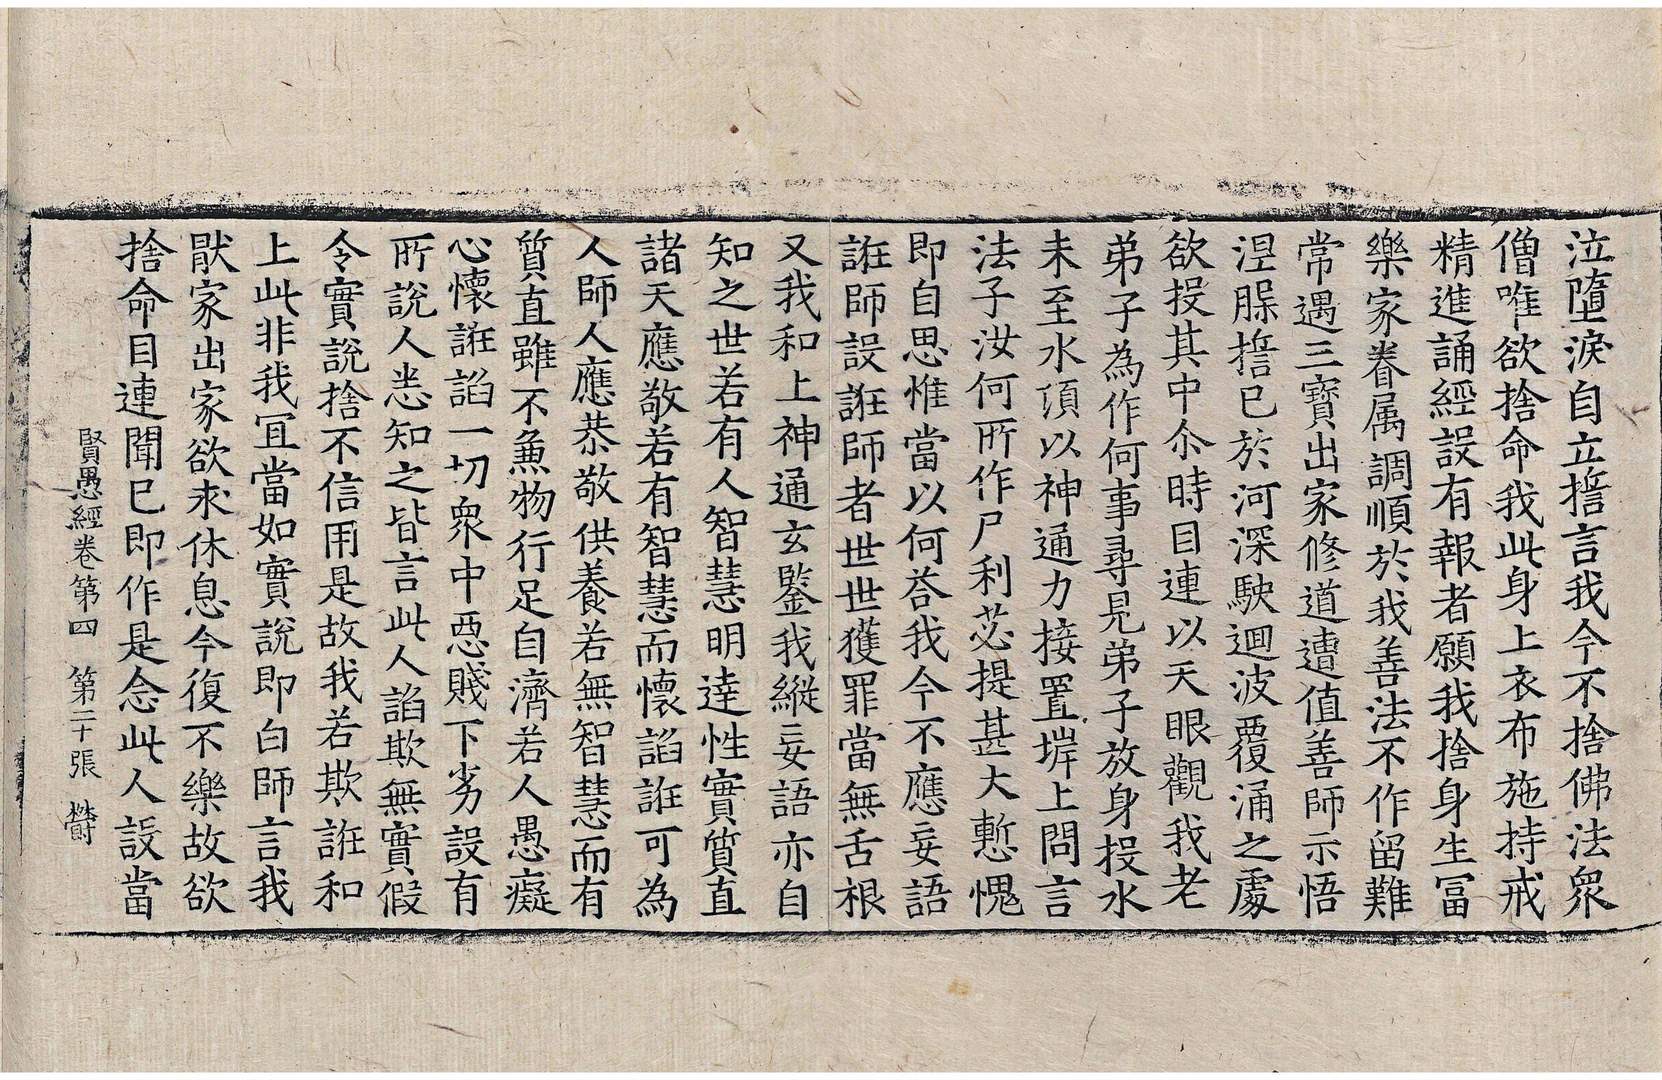 泣墮淚自立誓言我今不捨佛法衆
僧唯欲捨命我此身上衣布施持戒
精進誦經設有報者願我捨身生冨
樂家眷属調順於我善法不作留難
常遇三寶出家修道遭值善師示悟
涅䏶誓已於河深駛迴波覆涌之處
欲投其中尒時目連以天眼觀我老
弟子為作何事尋見弟子放身投水
未至水頂以神通力接置岸上問言
法子汝何所作尸利苾提甚大慙愧
即自思惟當以何荅我今不應妄語
誑師設誑師者世世獲罪當無舌根
又我和上神通玄鑒我縱妄語亦自
知之世若有人智慧明逹性實質直
諸天應敬若有智慧而懷諂誑可為
人師人應恭敬供養若無智慧而有
質直雖不兼物行足自濟若人愚癡
心懷誑諂一切衆中惡賤下劣設有
所說人恙知之皆言此人諂欺無實假
令實說捨不信用是故我若欺誑和
上此非我冝當如實說即白師言我
猒家出家欲求休息今復不樂故欲
捨命目連聞已即作是念此人設當
賢愚經卷第四　第二十張　欝